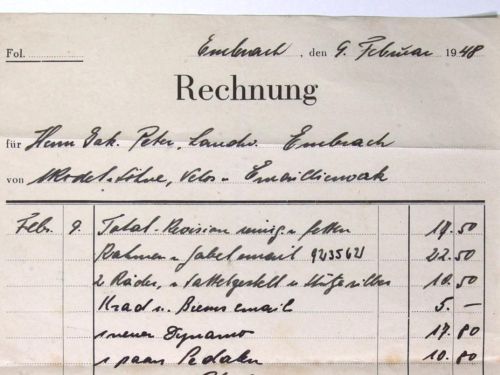 Fol. Embrach, den 9. Februar 1948
Rechnung
für Herrn Jak. Peter, Landw. Embrach
von & Söhne, Velos u
Febr. 9. Total-Revision reinig. u fetten 18.50
Rahmen u Gabel email 9235621 22.50
2 Räder, u Sattelgestell u Stütze silber 10.50
u. email 5.–
1 neuer Dynamo 17.80
1 paar Pedalen 10.80